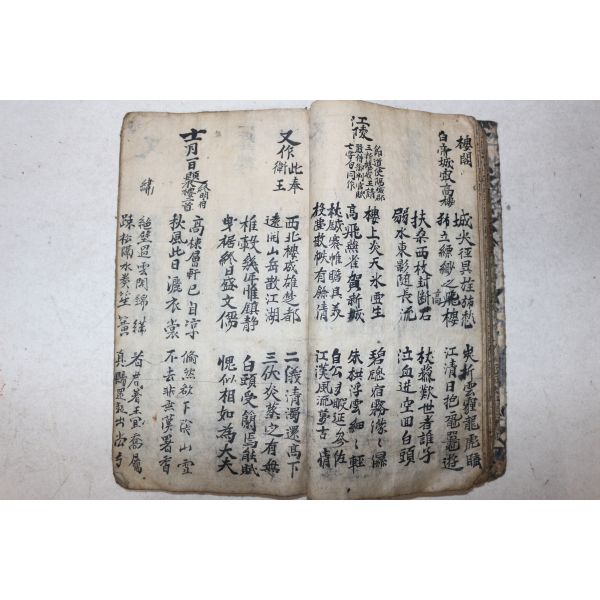 樓閣
白帝城最高樓
城尖徑具旌旆愁 峽坼雲霾龍虎睡
獨立縹緲之飛樓 江清日抱黿鼉遊
扶桑西枝封斷石 杖藜歎世者誰子
弱水東影隨長流 泣血迸空回白頭
江陵
節度使陽城郡
王新樓成王請
嚴侍御判官賦
七字句同作
樓上炎天氷雪生 碧窓宿霧濛〻濕
高飛燕雀賀新成 朱栱浮雲細〻輕
杖鉞褰帷瞻具美 自公多暇延參佐
投壺散帙有餘清 江漢風流萬古情
又作此奉
衛王
西北樓成雄楚都 二儀清濁還高下
遠開山岳散江湖 三伏炎蒸定有無
推轂幾年惟鎮静 白頭受簡焉能賦
曳裾終日盛文儒 愧似相如為大夫
七月一日題終明府
高棟層軒已自凉 翛然欲下陰山雪
秋風此日灑衣裳 不去非無漢署香
繡
絶壁過雲開錦繡 看君著王宜喬屬
疎松隔水奏笙簧 真賜還疑出尚方